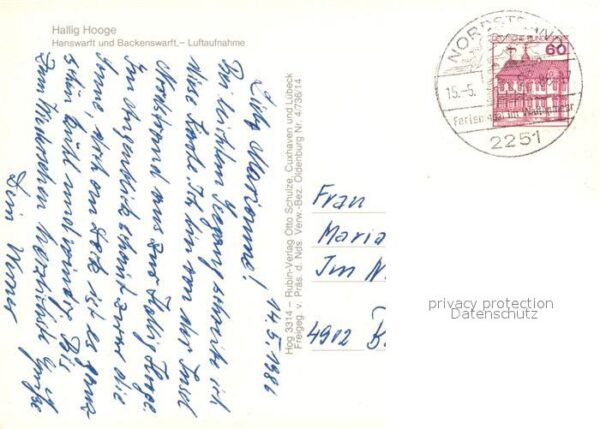 Hallig Hooge
Hanswarft und Backenswarft, – Luftaufnahme
14.5.1986
Liebe Marianne!
Bei leichtem Seegang schreibe ich
diese Karte. Ich bin von der Insel
Nordstrand aus zur Hallig Hooge.
Im Augenblick scheint zwar die
Sonne, doch an Deck ist es ganz
schön kühl und windig. Bis
zum Wiedersehen herzliche Grüße
Dein Werner
Hog 3314 – Rubin-Verlag Otto Schulze, Cuxhaven und Lübeck
Freigeg. v. Präs. d. Nds. Verw.-Bez. Oldenburg Nr. 4/736/14
NORDSTRAND
15.-5.
2251
60
Frau
Maria
Im W.
4902 B.
privacy protection
Datenschutz